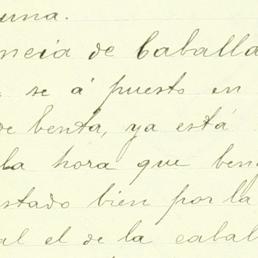 una.
ncia de Caballa
se á puesto en
de benta, ya está
la hora que beng
stado bien por la
al el de la caball